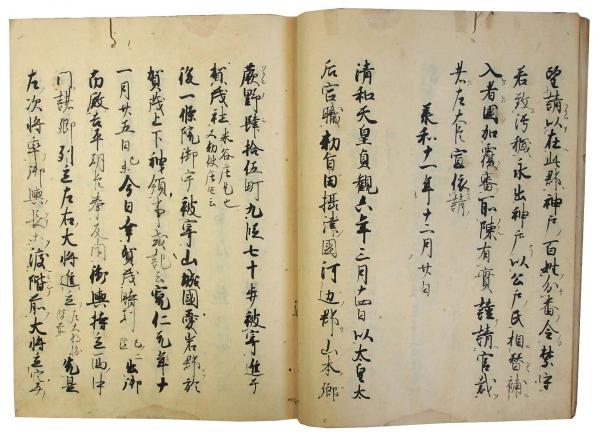 望請以在此郡神戸百姓分番令禁守
若致汚穢永出神戸以公戸民相替補
入者國加覆審所陳有實謹請官裁
者左大臣宣依請
承和十一年十二月廿日
清和天皇貞觀六年三月十四日以太皇太
后宮職勅旨田攝津國河辺郡山本郷
蕨野肆拾伍町九段七十歩被寄進于
賀茂社 米谷庄是也
後一條院御宇被寄山城國愛宕郡於
賀茂上下神領事或記云寛仁元年十
一月廿五日 今日幸賀茂 出御
南殿 御輿持立
門 卿列立左右大将進立 先是
左次将率御輿長 渡階前大将